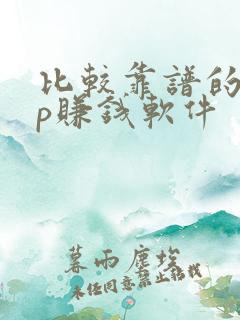 比較靠譜的
p賺錢軟件
暮雨塵埃
未经同意禁止搭载